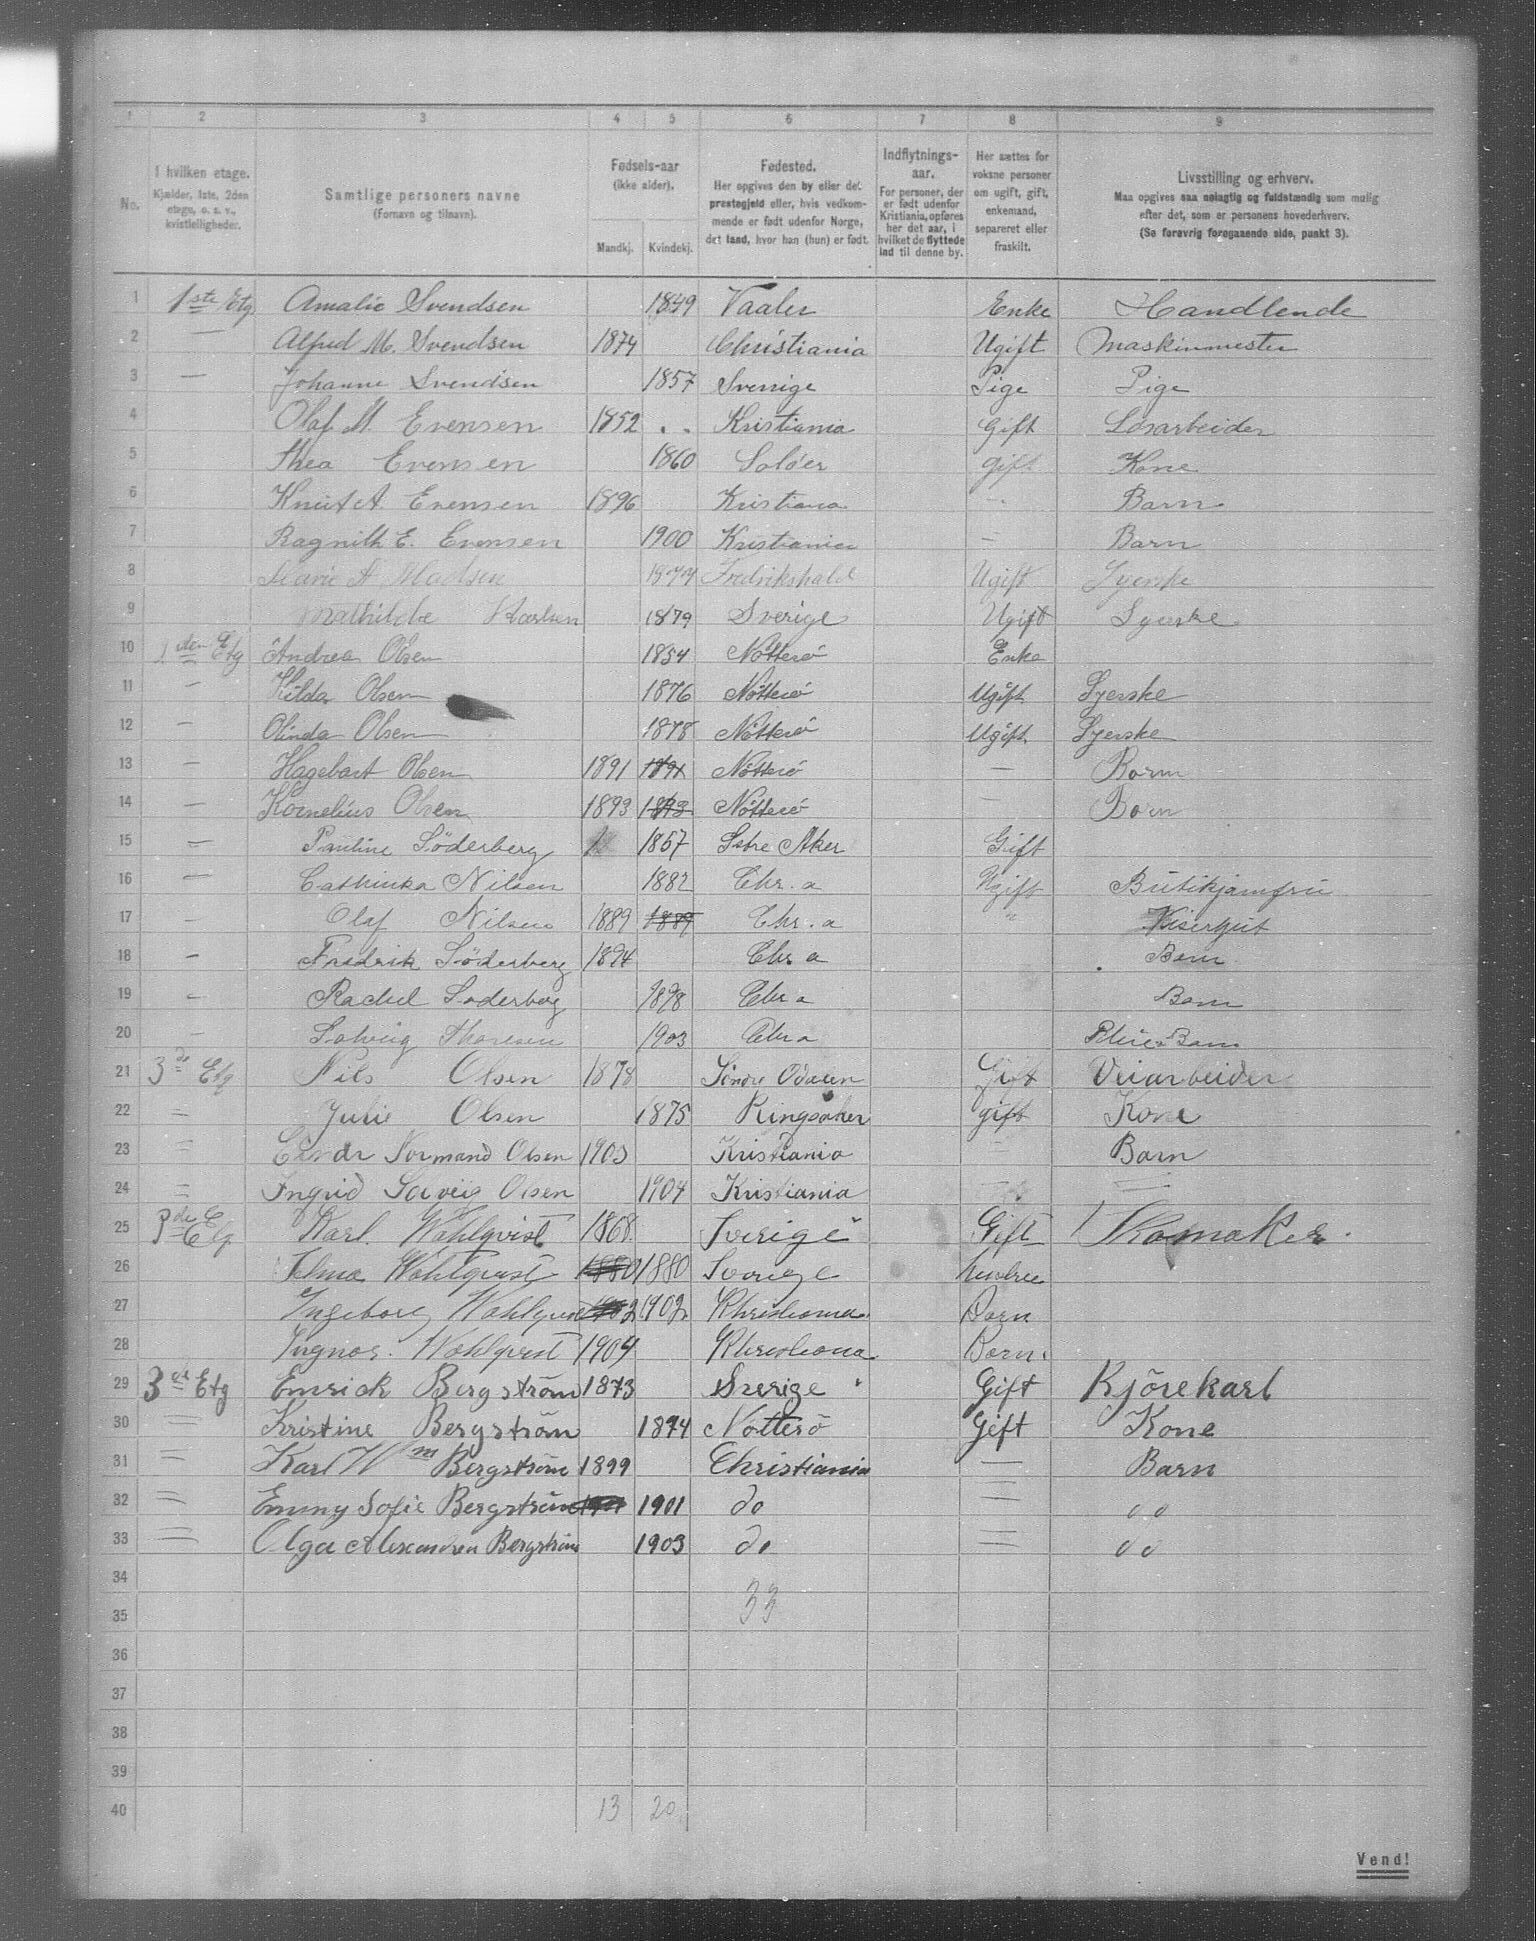 1 2 3 4 5 6 7 8 9
No.
I hvilken etage.
Kjælder, 1ste, 2den etage, o. s. v., kvistleiligheder.
Samtlige personers navne
(Fornavn og tilnavn).
Fødsels-aar
(ikke alder).
Mandkj. Kvindekj.
Fødested.
Her opgives den by eller det præstegjeld eller, hvis vedkommende er født udenfor Norge, det land, hvor han (hun) er født.
Indflytnings-aar.
For personer, der er født udenfor Kristiania, opføres her det aar, i hvilket de flyttede ind til denne by.
Her sættes for voksne personer om ugift, gift, enkemand, separeret eller fraskilt.
Livsstilling og erhverv.
Maa opgives saa nøiagtig og fuldstændig som mulig efter det, som er personens hovederhverv.
(Se forøvrig foregaaende side, punkt 3).
1 1ste Etg Amalie Svendsen 1849 Vaaler Enke Handlende
2 — Alfred M. Svendsen 1874 Christiania Ugift Maskinmester
3 — Johanne Svendsen 1857 Sverrige Pige Pige
4 Olaf M Evensen 1852 . . Kristiania Gift Løsarbeider
5 Thea Evensen 1860 Soløer gift Kone
6 Knut A. Evensen 1896 Kristiana - Barn
7 Ragnith E. Evensen 1900 Kristiania - Barn
8 Marie A Madsen 1877 Fredrikshald Ugift Syerske
9 Mathilde Karlsen 1879 Sverige Ugift Syerske
10 2den Etg Andrea Olsen 1854 Nötterö Enke
11 — Hilda Olsen 1876 Nötterö Ugift Syerske
12 — Olinda Olsen 1878 Nötterö Ugift Syerske
13 — Hagebart Olsen 1891 1891 Nötterö — Barn
14 — Kornelius Olsen 1893 1893 Nötterö — Barn
15 — Pauline Söderberg 1857 Aker Gift
16 — Cathinka Nilsen 1882 Chr.a Ugift Butikjomfru
17 — Olaf Nilsen 1889 1889 Chr.a " Visergut
18 — Fredrik Söderberg 1894 Chr a Barn
19 — Rachel Söderberg 1898 Chr a Barn
20 — Solveig Thoresen 1903 Chr a Pleie Barn
21 3de Etg Nils Olsen 1878 Söndre Odalen Gift Veiarbeider
22 = Julie Olsen 1875 Ringsaker gift Kone
23 = Normand Olsen 1903 Kristiania = Barn
24 = Ingrid Solveig Olsen 1904 Kristiania — —
25 3de Etg Karl. Wahlqvist 1868. Sverige Gift Skomaker.
26 Wahlqvist 1880 1880 Sverige
27 Ingeborg Wahlqvist 1902 1902 Khristiania Barn
28 Ingnar. Wahlqvist 1904 Khristiania Barn.
29 3de Etg Emrick Bergström 1873 Sverige Gift Kjörekarl
30 = Kristine Bergström 1874 Nötterö Gift Kone
31 = Karl Wm Bergström 1899 Christiania — Barn
32 = Emmy Sofie Bergström 1901 1901 do — do
33 = Olga Alexandra Bergström 1903 do — do
34
33
35
36
37
38
39
40 13 20
Vend!